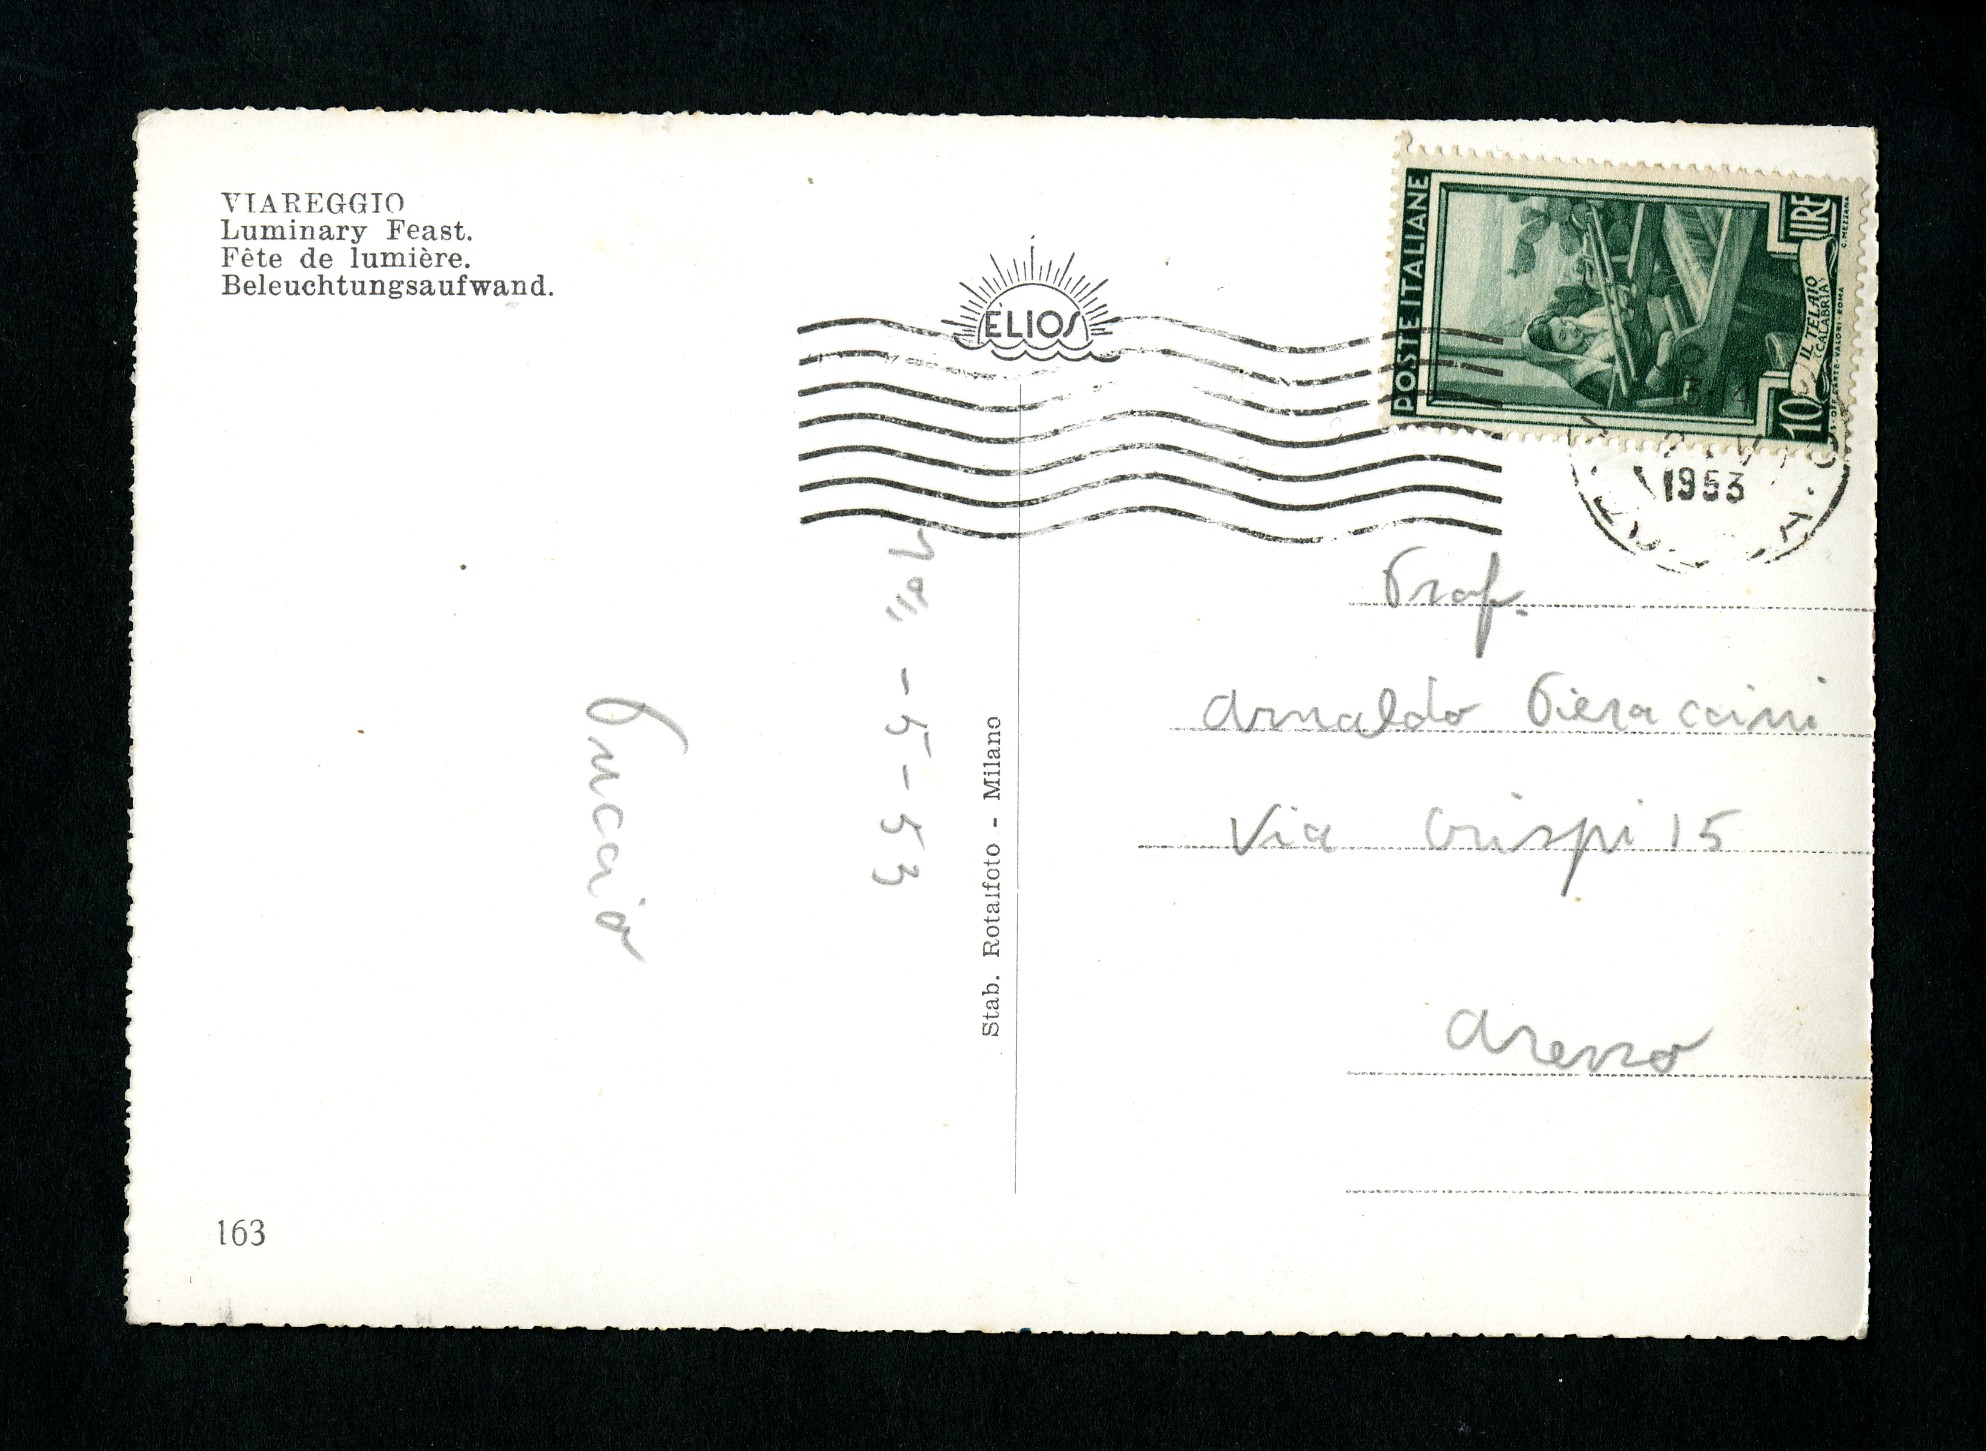 VIAREGGIO
Luminary Feast.
Fête de lumière.
Beleuchtungsaufwand.
ÉLIOS
POSTE ITALIANE
LIRE
10
IL TELAIO
(CALABRIA)
C. MEZZANA
1953
-5-53
Puccio
Stab. Rotalfoto - Milano
Prof.
Arnaldo Pieraccini
Via Crispi 15
Arezzo
163